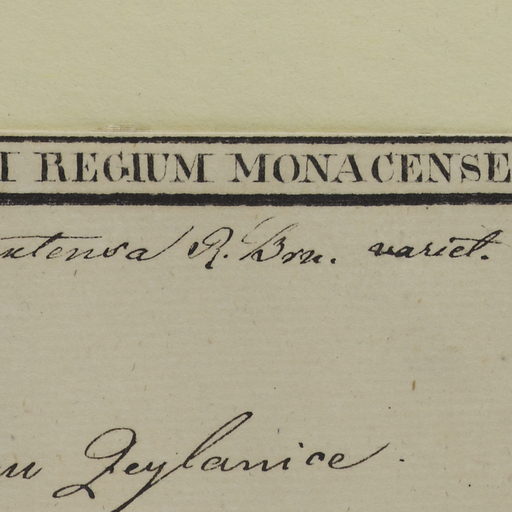 REGIUM MONACENSE
R. Brn. variet.
Zeylanice.